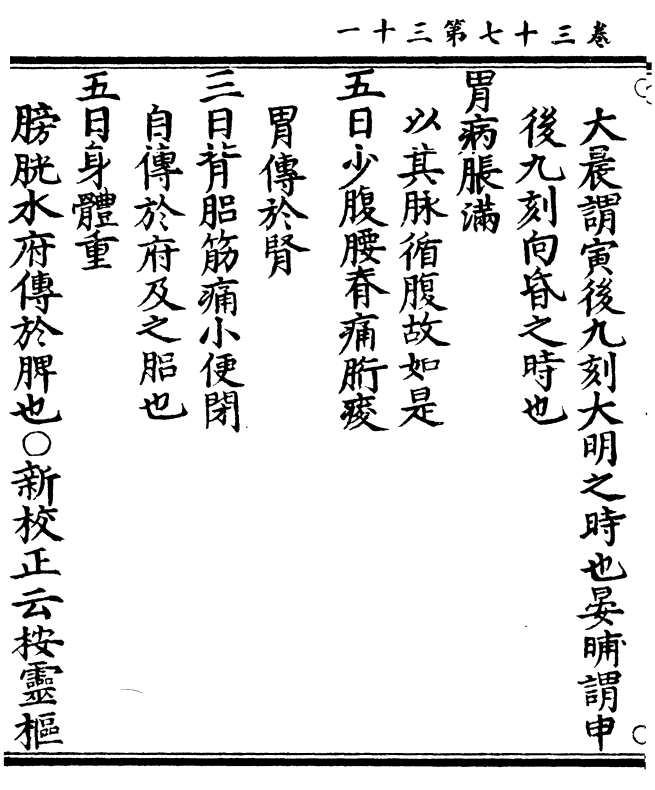 卷三十七第三十一
大晨謂寅後九刻大明之時也晏晡謂申
後九刻向昏之時也
胃病脹滿
以其脉循腹故如是
五日少腹腰脊痛胻痠
胃傳於腎
三日背䏚筋痛小便閉
自傳於府及之䏚也
五日身體重
膀胱水府傳於脾也○新校正云按靈樞